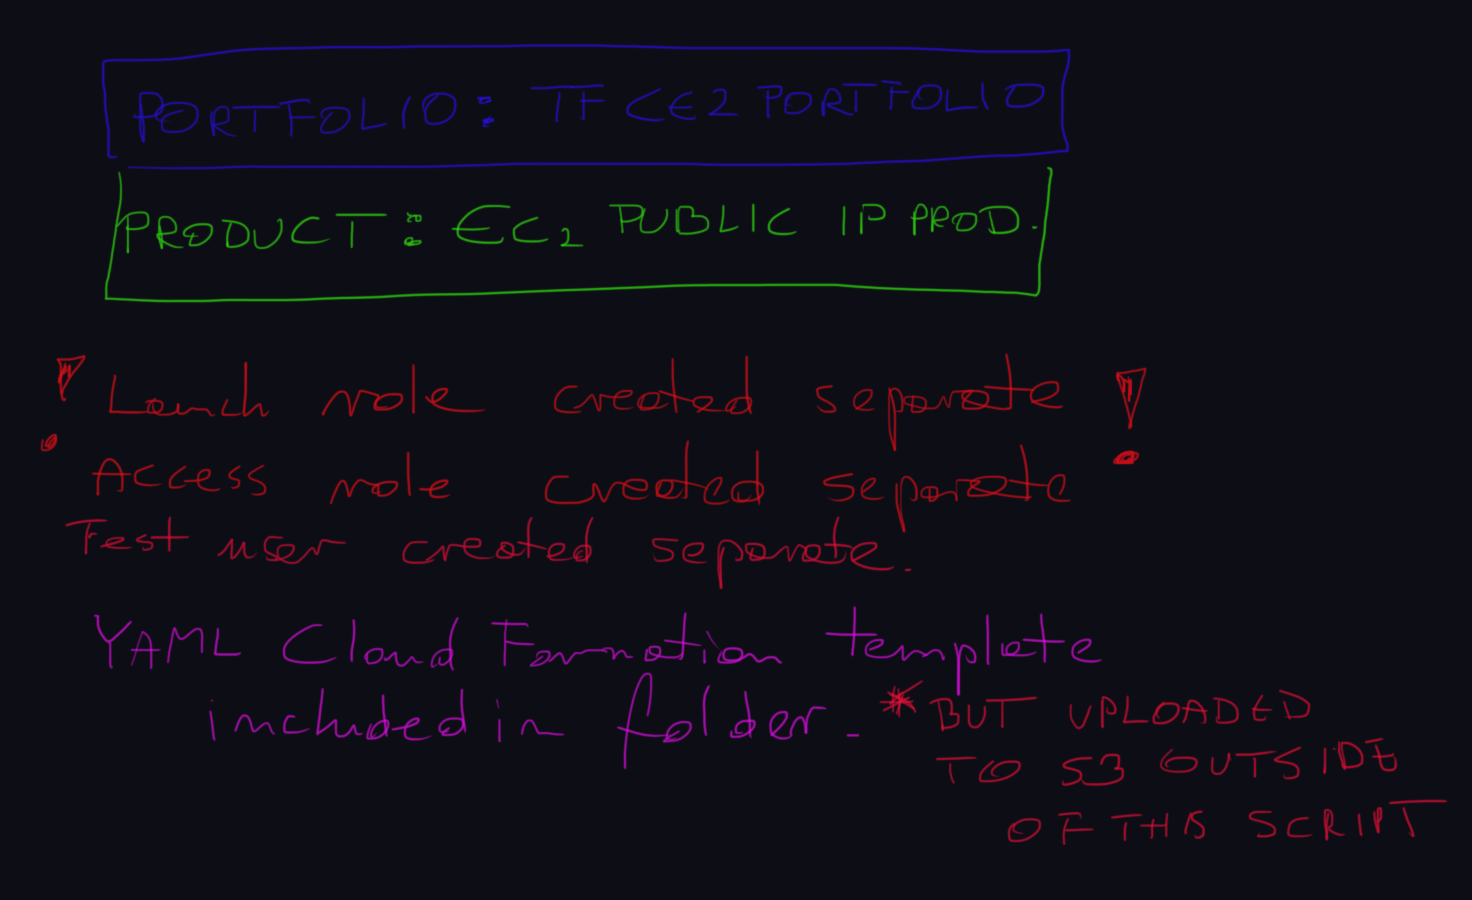 PORTFOLIO: TF CE2 PORTFOLIO
PRODUCT: EC2 PUBLIC IP PROD.
Launch role created separate !
Access role created separate
Test user created separate.
YAML Cloud Formation template
included in folder.
* BUT UPLOADED
TO S3 OUTSIDE
OF THIS SCRIPT